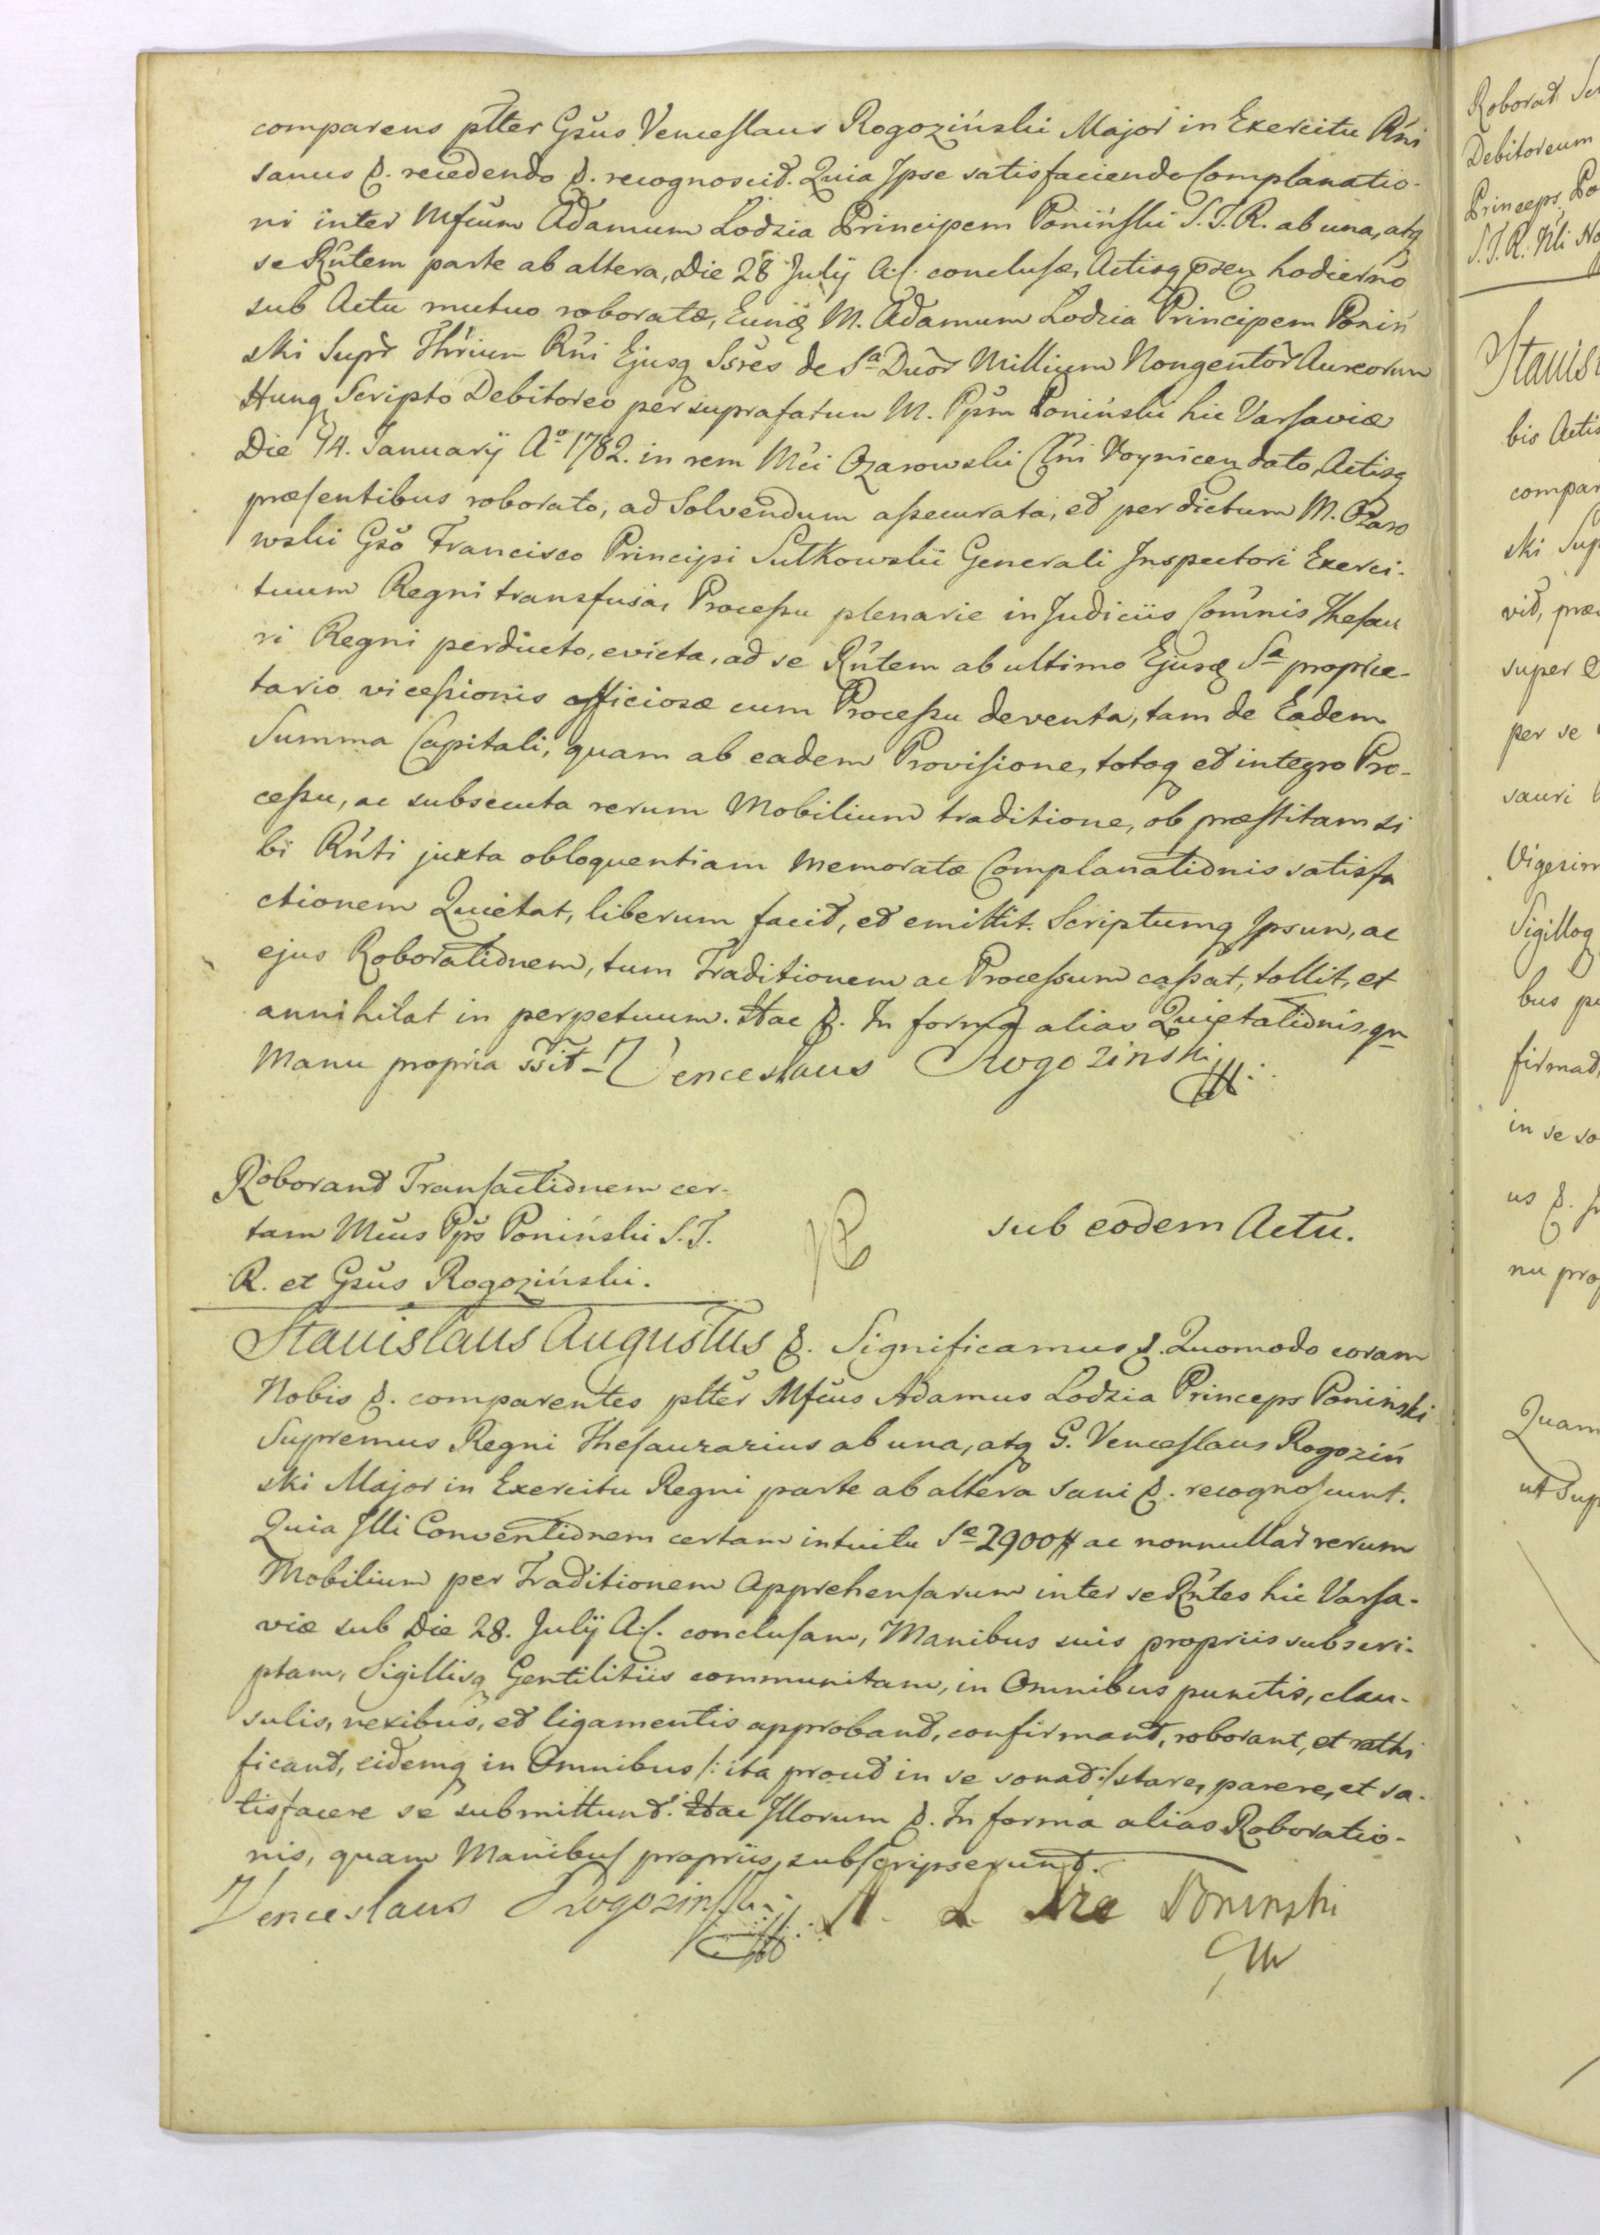 comparens pltter Gsus Venceslaus Rogoziński Major in Exercitu Rni
sanus &. recedendo &. recognoscit. Quia Ipse satisfaciendo Complanatio-
ni inter Mfcum Adamum Lodzia Principem Poniński S.T.R. ab una, atq
se Rntem parte ab altera, Die 28 July A.C. conclusæ, Actisq hodierno
sub Actu mutuo roboratæ, M. Adamum Lodzia Principem Poniń
ski Supr Thrium Rni Ejusq Ssres de Sa Duor Millium Nongentor Aureorum
Hung Scripto Debitoreo per suprafatum M. Ppm Poniński hic Varsaviæ
Die 14. January Ao 1782. in rem Mci Ozarowski Clni Voynicen dato, Actisq
præsentibus roborato, ad Solvendum assecurata, et per dictum M. Ozaro
wski Gso Francisco Principi Sułkowski Generali Inspectori Exerci-
tuum Regni transfusa, Processu plenarie in Judiciis Comnis Thesau
ri Regni perducto, evicta, ad se Rntem ab ultimo Ejusq Sa proprie-
tario vi cessionis officiosæ cum Processu deventa, tam de Eadem
Summa Capitali, quam ab eadem Provisione, totoq et integro Pro-
cessu, ac subsecuta rerum Mobilium traditione, ob præstitam si
bi Rnti juxta obloquentiam memoratæ Complanationis satisfa
ctionem Quietat, liberum facit, et emittit. Scriptumq Ipsum, ac
ejus Roborationem, tum Traditionem ac Processum cassat, tollit, et
annihilat in perpetuum. Hac &. In forma alias Quietationis, qm
Manu propria ssit – Venceslaus Rogozinski
Roborant Transactionem cer-
tam Mcus Pps Poniński S.T.
R. et Gsus Rogoziński.
sub eodem Actu.
Stanislaus Augustus &. Significamus &. Quomodo coram
Nobis &. comparentes pltter Mfcus Adamus Lodzia Princeps Poniński
Supremus Regni Thesaurarius ab una, atq G. Venceslaus Rogoziń
ski Major in Exercitu Regni parte ab altera Sani &. recognoscunt.
Quia Illi Conventionem certam intuitu Sæ 2900 # ac nonnullar rerum
Mobilium per Traditionem Apprehensarum inter se Rntes hic Varsa-
viæ sub Die 28. July A.C. conclusam, Manibus suis propriis subscri-
ptam, Sigillisq Gentilitiis communitam, in Omnibus punctis, clau-
sulis, nexibus, et ligamentis approbant, confirmant, roborant, et rathi
ficant, eidemq in Omnibus /: ita prout in se sonat :/ stare, parere, et sa-
tisfacere se submittunt. Hac Illorum &. In forma alias Roboratio-
nis, quam Manibus propriis subscripserunt.
Venceslaus Rogozinski
A. L. Poninski
Roborat
Debitoreum
Princeps Po
S.T.R. Illi
Stanisl
bis Actis
compar
ski Sup
vit, præ
super
per se
sauri
Vigesim
Sigilloq
bus
firmat,
in se so
us &.
nu prop
Quam
ut Sup